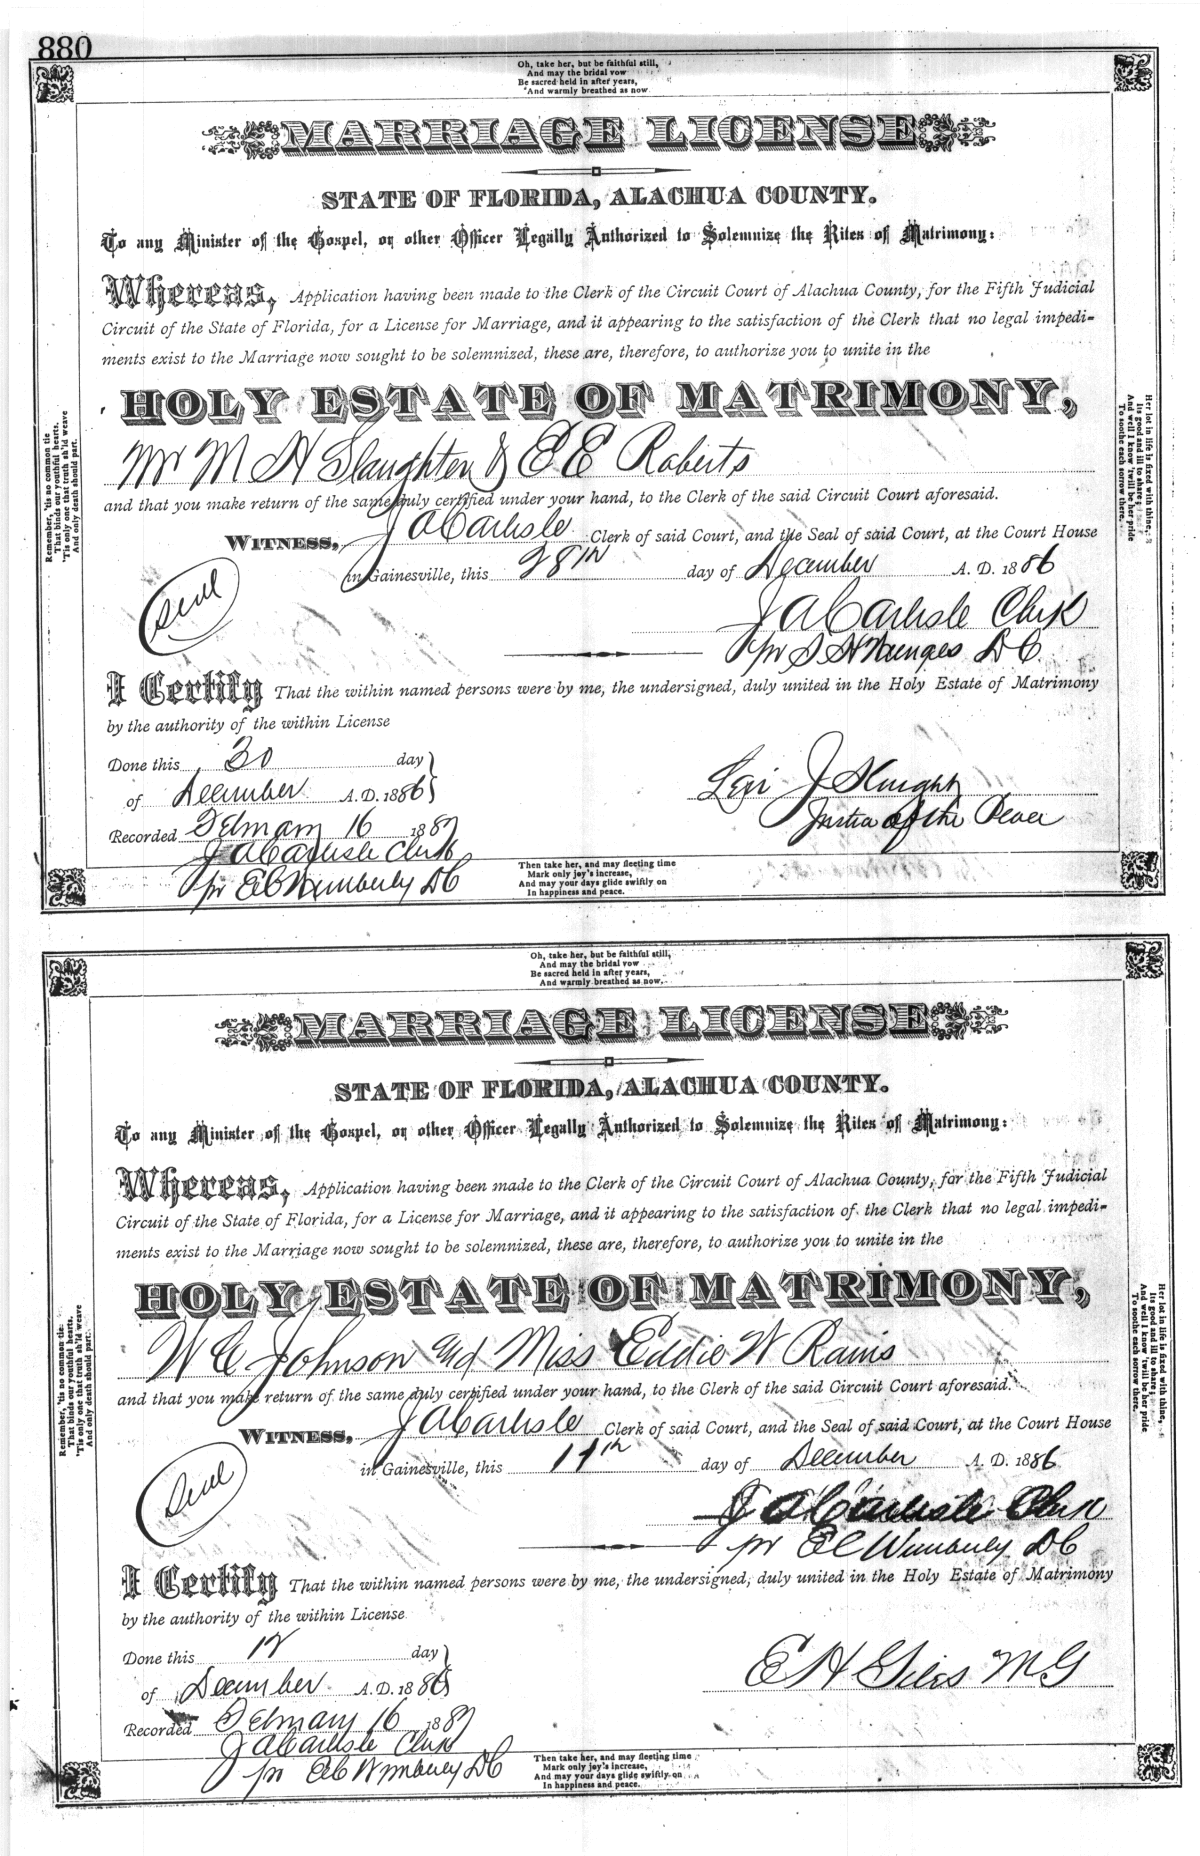 880
Oh, take her, but be faithful still,
And may the bridal vow
Be sacred held in after years,
And warmly breathed as now
MARRIAGE LICENSE
STATE OF FLORIDA, ALACHUA COUNTY.
To any Minister of the Gospel, or other Officer Legally Authorized to Solemnize the Rites of Matrimony:
Whereas, Application having been made to the Clerk of the Circuit Court of Alachua County, for the Fifth Judicial
Circuit of the State of Florida, for a License for Marriage, and it appearing to the satisfaction of the Clerk that no legal impedi-
ments exist to the Marriage now sought to be solemnized, these are, therefore, to authorize you to unite in the
HOLY ESTATE OF MATRIMONY,
Mr M H Slaughter & E E Roberts
and that you make return of the same duly certified under your hand, to the Clerk of the said Circuit Court aforesaid.
WITNESS, J A Carlisle Clerk of said Court, and the Seal of said Court, at the Court House
in Gainesville, this 28th day of December A. D. 1886
Seal
J A Carlisle Clerk
pr S H DC
I Certify That the within named persons were by me, the undersigned, duly united in the Holy Estate of Matrimony
by the authority of the within License
Done this 30 day
of December A. D. 1886
Levi J Slaughter
Justice of the Peace
Recorded February 16 1887
J A Carlisle Clerk
pr E C Wimberly DC
Then take her, and may fleeting time
Mark only joy's increase,
And may your days glide swiftly on
In happiness and peace.
Remember, 'tis no common tie
That binds your youthful hearts,
'Tis only one that truth sh'ld weave
And only death should part.
Her lot in life is fixed with thine,
Its good and ill to share;
And well I know 'twill be her pride
To soothe each sorrow there.
Oh, take her, but be faithful still,
And may the bridal vow
Be sacred held in after years,
And warmly breathed as now.
MARRIAGE LICENSE
STATE OF FLORIDA, ALACHUA COUNTY.
To any Minister of the Gospel, or other Officer Legally Authorized to Solemnize the Rites of Matrimony:
Whereas, Application having been made to the Clerk of the Circuit Court of Alachua County, for the Fifth Judicial
Circuit of the State of Florida, for a License for Marriage, and it appearing to the satisfaction of the Clerk that no legal impedi-
ments exist to the Marriage now sought to be solemnized, these are, therefore, to authorize you to unite in the
HOLY ESTATE OF MATRIMONY,
W C Johnson and Miss Eddie W Rains
and that you make return of the same duly certified under your hand, to the Clerk of the said Circuit Court aforesaid.
WITNESS, J A Carlisle Clerk of said Court, and the Seal of said Court, at the Court House
in Gainesville, this 11th day of December A. D. 1886
Seal
J A Carlisle Clerk
pr E C Wimberly DC
I Certify That the within named persons were by me, the undersigned, duly united in the Holy Estate of Matrimony
by the authority of the within License
Done this 12 day
of December A. D. 1886
E H Giles M G
Recorded February 16 1887
J A Carlisle Clerk
pr E C Wimberly DC
Then take her, and may fleeting time
Mark only joy's increase,
And may your days glide swiftly on
In happiness and peace.
Remember, 'tis no common tie
That binds your youthful hearts.
'Tis only one that truth sh'ld weave
And only death should part.
Her lot in life is fixed with thine,
Its good and ill to share;
And well I know 'twill be her pride
To soothe each sorrow there.